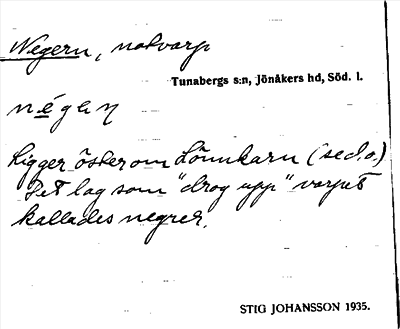 Negern, notvarp
Tunabergs s:n, Jönåkers hd, Söd. l.
négeṇ
Ligger öster om Lönnkarn (se d.o.)
Det lag som "drog upp" varpet
kallades negrer.
STIG JOHANSSON 1935.